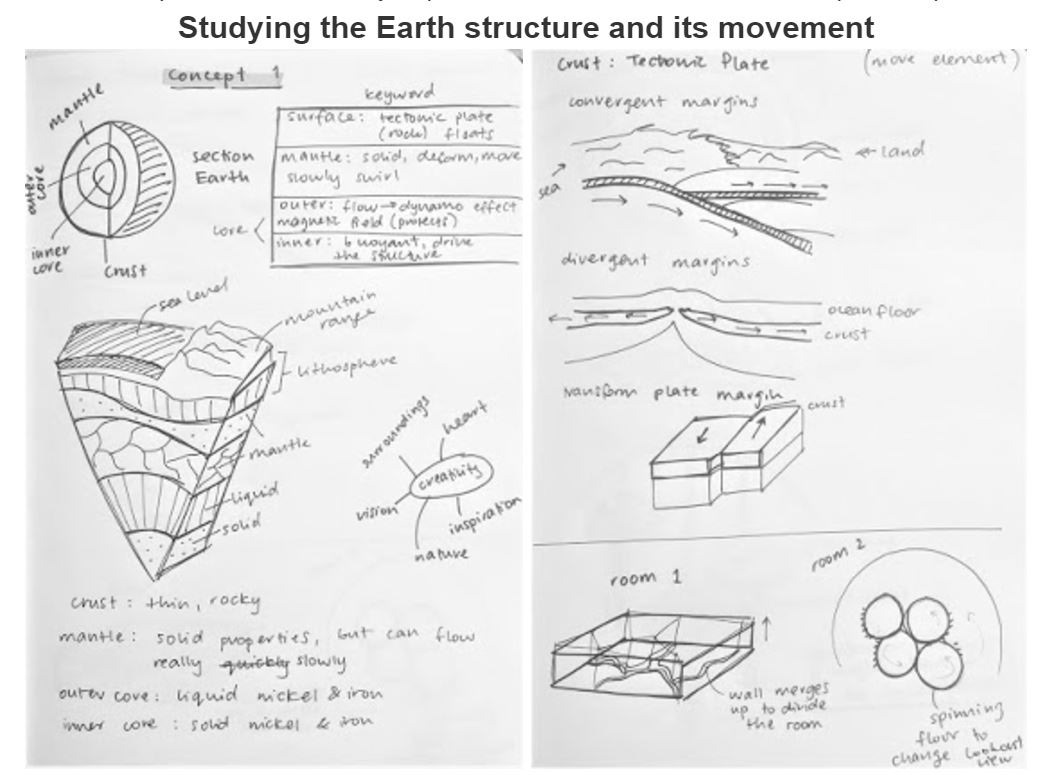 Studying the Earth structure and its movement
Concept 1
mantle
outer
core
inner
core
crust
section
Earth
keyword
surface: tectonic plate
(rock) floats
mantle: solid, deform, move
slowly swirl
core
outer: flow → dynamo effect
magnetic field (protects)
inner: buoyant, drive
the structure
sea level
mountain
range
lithosphere
mantle
liquid
solid
surroundings
heart
creativity
vision
inspiration
nature
crust: thin, rocky
mantle: solid properties, but can flow
really quickly slowly
outer core: liquid nickel & iron
inner core: solid nickel & iron
crust: Tectonic Plate (move element)
convergent margins
land
sea
divergent margins
ocean floor
crust
transform plate margin
crust
room 1
wall merges
up to divide
the room
room 2
spinning
floor to
change lookout
view